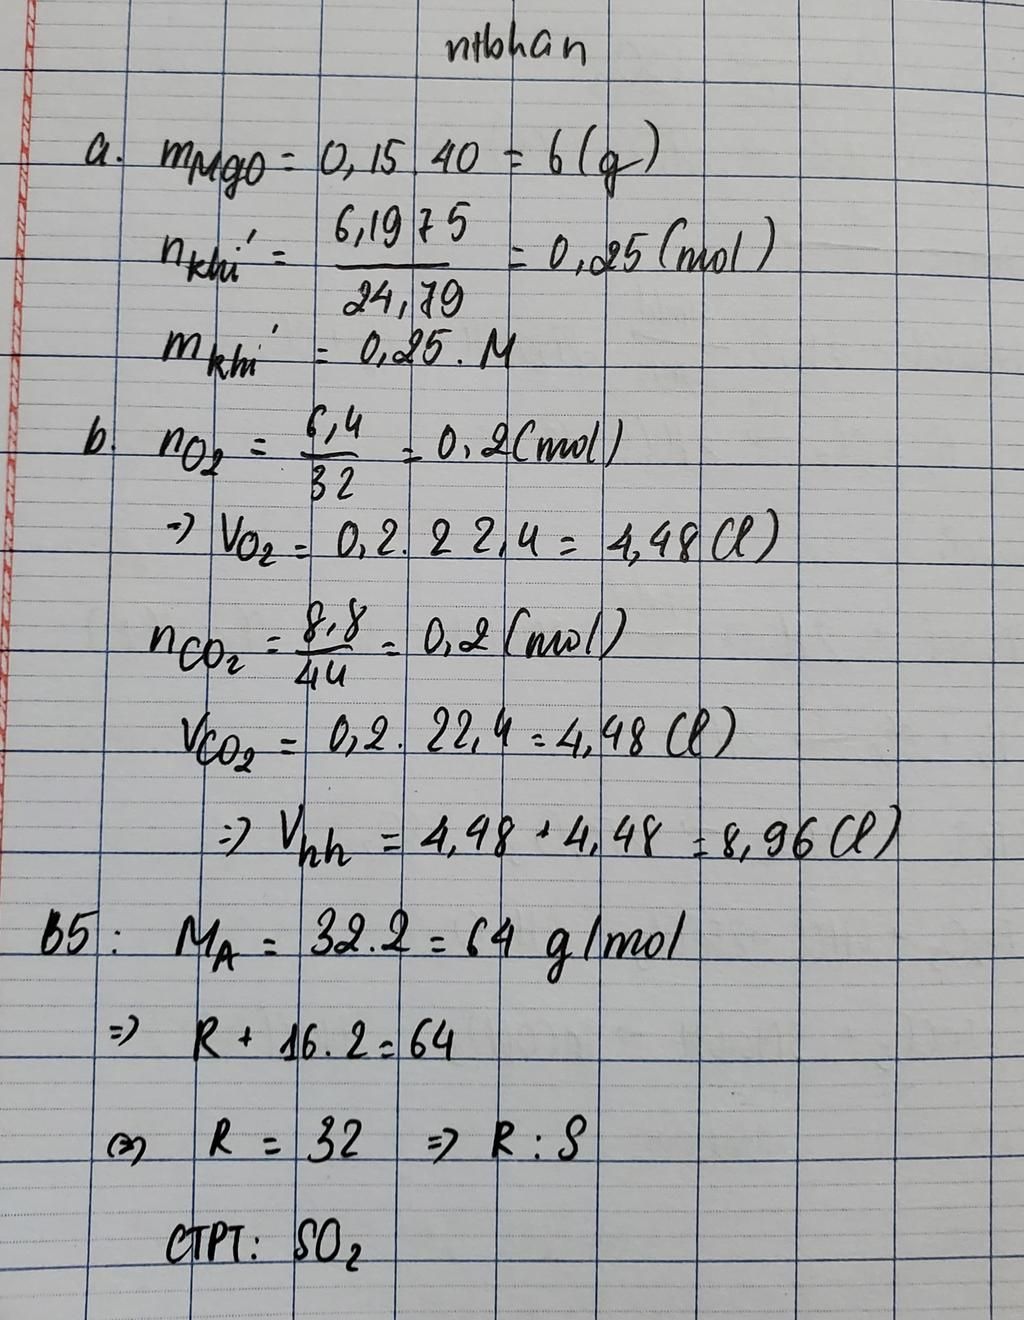 ntbhan
a. mMgO = 0,15.40 = 6 (g)
nkhí = 6,1975 / 24,79 = 0,25 (mol)
mkhí = 0,25 . M
b. nO2 = 6,4 / 32 = 0,2 (mol)
=> VO2 = 0,2. 22,4 = 4,48 (l)
nCO2 = 8,8 / 44 = 0,2 (mol)
VCO2 = 0,2. 22,4 = 4,48 (l)
=> Vhh = 4,48 + 4,48 = 8,96 (l)
B5: MA = 32.2 = 64 g/mol
=> R + 16.2 = 64
<=> R = 32 => R : S
CTPT: SO2